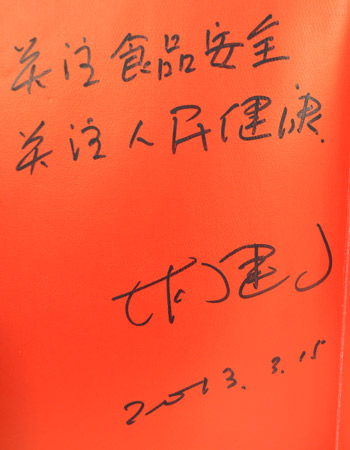 关注食品安全
关注人民健康
2013.3.15